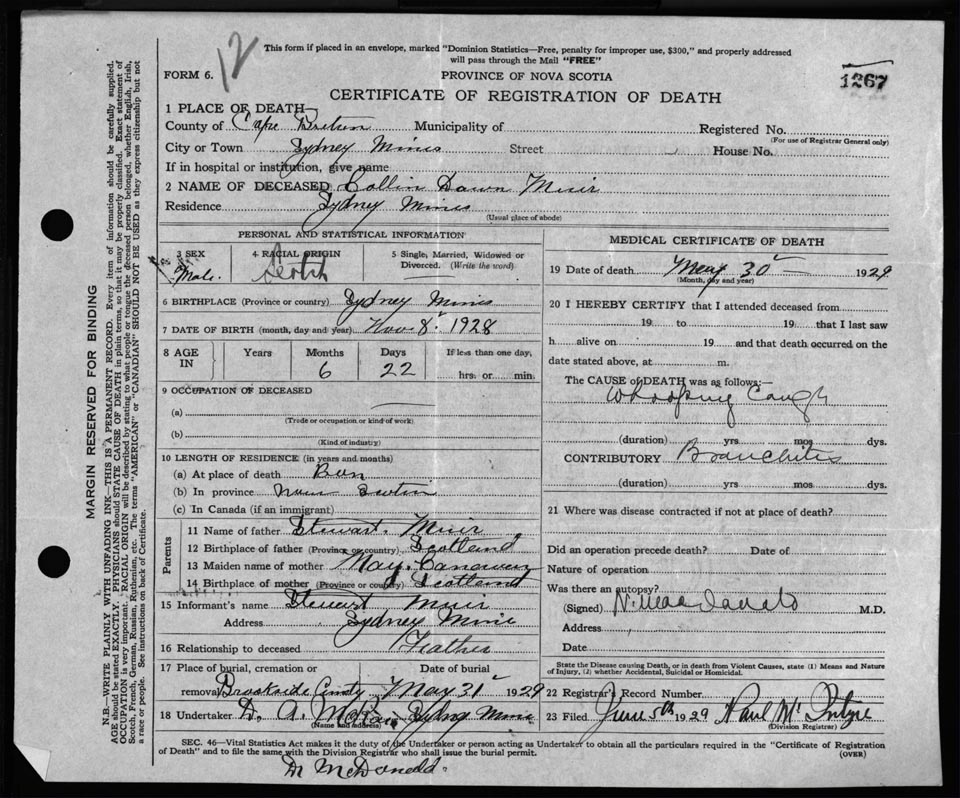 12
This form if placed in an envelope, marked "Dominion Statistics—Free, penalty for improper use, $300," and properly addressed
will pass through the Mail "FREE"
FORM 6.
PROVINCE OF NOVA SCOTIA
1267
CERTIFICATE OF REGISTRATION OF DEATH
1 PLACE OF DEATH
County of Cape Breton Municipality of Registered No.
(For use of Registrar General only)
City or Town Sydney Mines Street House No.
If in hospital or institution, give name
2 NAME OF DECEASED Collin Dawn Muir
Residence Sydney Mines
(Usual place of abode)
PERSONAL AND STATISTICAL INFORMATION
3 SEX Male
4 RACIAL ORIGIN Scotch
5 Single, Married, Widowed or Divorced. (Write the word)
6 BIRTHPLACE (Province or country) Sydney Mines
7 DATE OF BIRTH (month, day and year) Nov 8 1928
8 AGE IN Years Months Days If less than one day,
6 22 hrs. or min.
9 OCCUPATION OF DECEASED
(a)
(Trade or occupation or kind of work)
(b)
(Kind of industry)
10 LENGTH OF RESIDENCE (in years and months)
(a) At place of death
(b) In province Nova Scotia
(c) In Canada (if an immigrant)
Parents
11 Name of father Stewart Muir
12 Birthplace of father (Province or country) Scotland
13 Maiden name of mother May
14 Birthplace of mother (Province or country) Scotland
15 Informant's name Stewart Muir
Address Sydney Mines
16 Relationship to deceased Father
17 Place of burial, cremation or Date of burial
removal Brookside May 31 1929
18 Undertaker D. A. Sydney Mines
(Name and address)
MEDICAL CERTIFICATE OF DEATH
19 Date of death May 30 1929
(Month, day and year)
20 I HEREBY CERTIFY that I attended deceased from
19 to 19 that I last saw
h alive on 19 and that death occurred on the
date stated above, at m.
The CAUSE of DEATH was as follows:—
Whooping Cough
(duration) yrs mos dys.
CONTRIBUTORY Bronchitis
(duration) yrs. mos. dys.
21 Where was disease contracted if not at place of death?
Did an operation precede death? Date of
Nature of operation
Was there an autopsy?
(Signed) M.D.
Address
Date
State the Disease causing Death, or in death from Violent Causes, state (1) Means and Nature
of Injury, (2) whether Accidental, Suicidal or Homicidal.
22 Registrar's Record Number
23 Filed June 5th 1929
(Division Registrar)
SEC. 46—Vital Statistics Act makes it the duty of the Undertaker or person acting as Undertaker to obtain all the particulars required in the "Certificate of Registration
of Death" and to file the same with the Division Registrar who shall issue the burial permit. (OVER)
Dr McDonald.
MARGIN RESERVED FOR BINDING
N.B.—WRITE PLAINLY WITH UNFADING INK—THIS IS A PERMANENT RECORD. Every item of information should be carefully supplied.
AGE should be stated EXACTLY. PHYSICIANS should STATE CAUSE OF DEATH in plain terms, so that it may be properly classified. Exact statement of
OCCUPATION is very important. "RACIAL ORIGIN" will be described by stating to what people or tongue the deceased person belonged, whether English, Irish,
Scotch, French, German, Russian, Ruthenian, etc. The terms "AMERICAN" or "CANADIAN" SHOULD NOT BE USED as they express citizenship but not
a race or people. See instructions on back of Certificate.